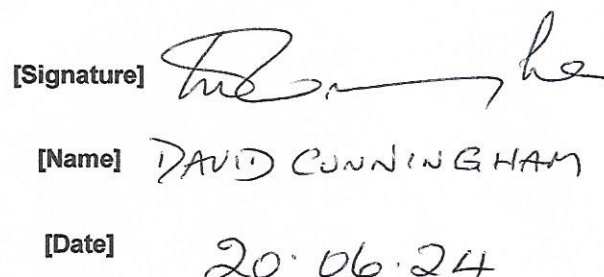 [Signature]
[Name] DAVID CUNNINGHAM
[Date] 20.06.24